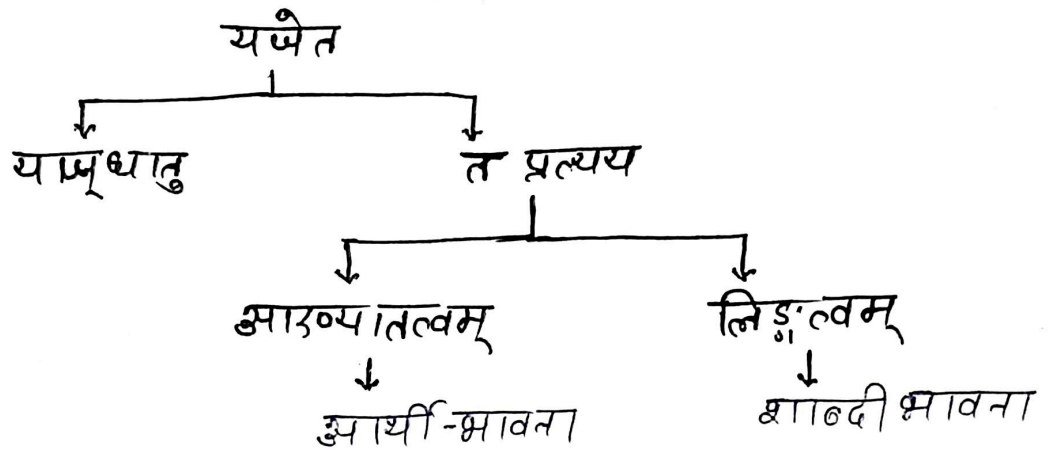 यजेत
याज् धातु
त प्रत्यय
आख्यातत्वम्
लिङ्त्वम्
आर्थी-भावना
शाब्दी भावना